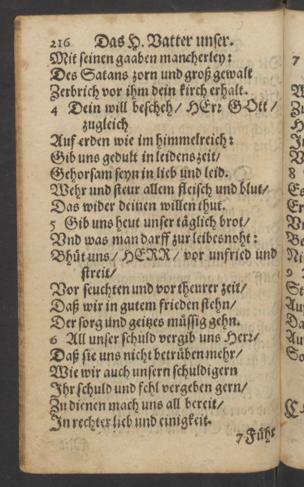 216 Das H. Vatter unser.
Mit seinen gaaben mancherley:
Des Satans zorn und groß gewalt
Zerbrich vor ihm dein kirch erhalt.
4 Dein will bescheh / HErr GOtt /
zugleich
Auf erden wie im himmelreich:
Gib uns gedult in leidenszeit /
Gehorsam seyn in lieb und leid.
Wehr und steur allem fleisch und blut /
Das wider deinen willen thut.
5 Gib uns heut unser täglich brot /
Vnd was man darff zur leibesnoht:
Bhüt uns / HERR / vor unfried und
streit /
Vor seuchten und vor theurer zeit /
Daß wir in gutem frieden stehn /
Der sorg und geitzes müssig gehn.
6 All unser schuld vergib uns Herr /
Daß sie uns nicht betrüben mehr /
Wie wir auch unsern schuldigern
Ihr schuld und fehl vergeben gern /
Zu dienen mach uns all bereit /
In rechter lieb und einigkeit.
7 Führ